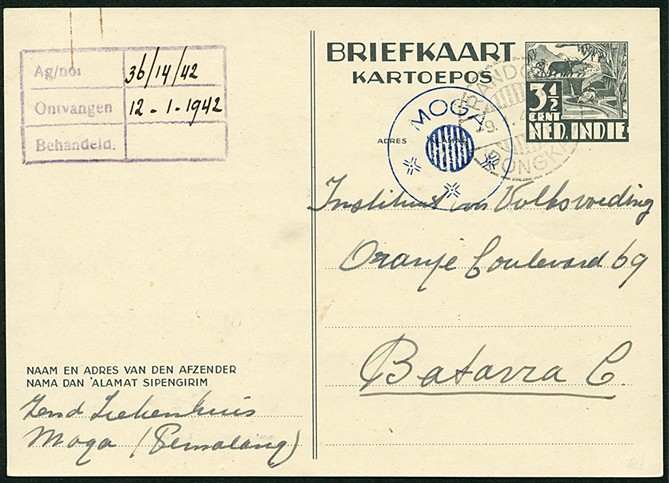 BRIEFKAART
KARTOEPOS
Ag/no: 36/14/42
Ontvangen 12-1-1942
Behandeld.
3½
CENT
NED. INDIE
MOGA
ADRES
Instituut voor Volksvoeding
Oranje Boulevard 69
Batavia C.
NAAM EN ADRES VAN DEN AFZENDER
NAMA DAN ALAMAT SIPENGIRIM
Zend. Ziekenhuis
Moga (Pemalang)